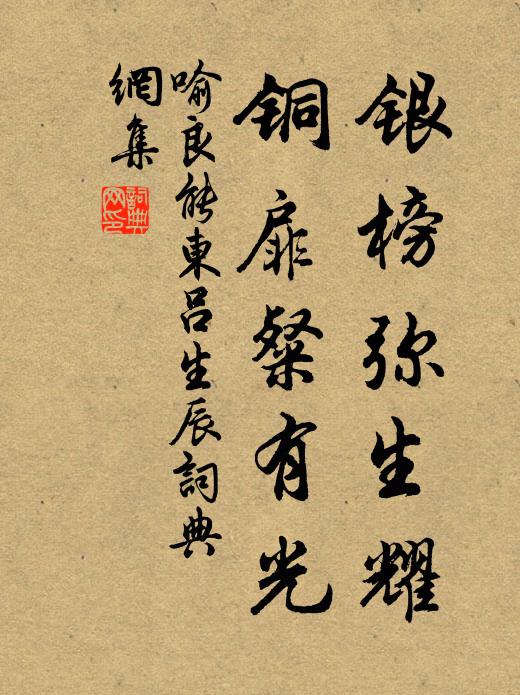 银榜弥生耀
铜扉粲有光
喻良能東吕生辰詞典
網集
詞典网印